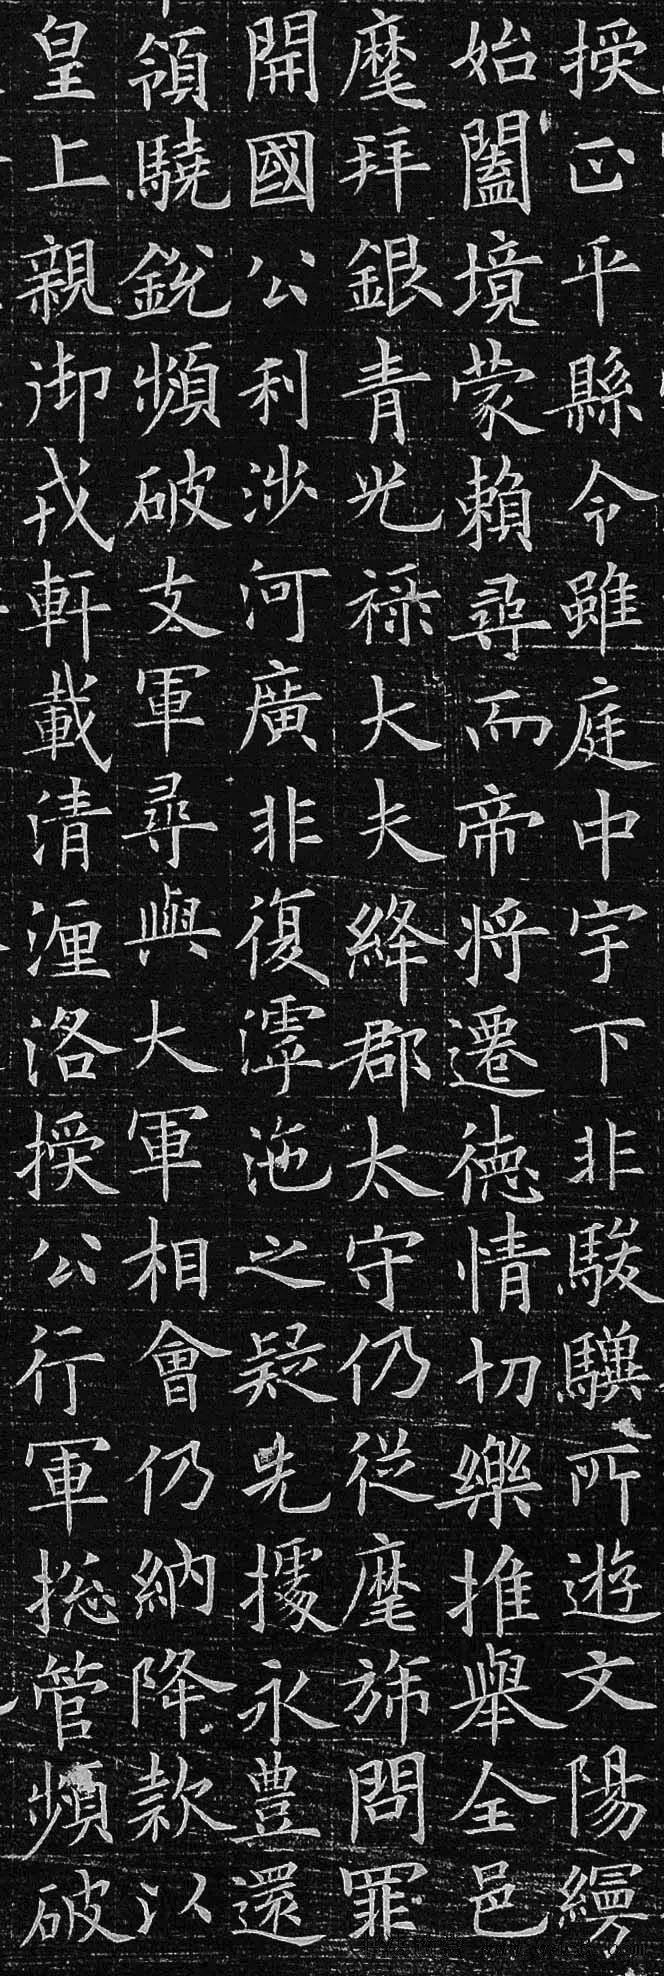 授正平縣令雖庭中宇下非駿驥所遊文陽縵
始闔境蒙賴尋而帝將遷德情切樂推舉全邑
麾拜銀青光禄大夫絳郡太守仍從麾斾問罪
開國公利涉河廣非復滹沲之疑先據永豊還
領驍鋭頻破支軍尋與大軍相會仍納降款以
皇上親御戎軒載清瀍洛授公行軍揔管頻破